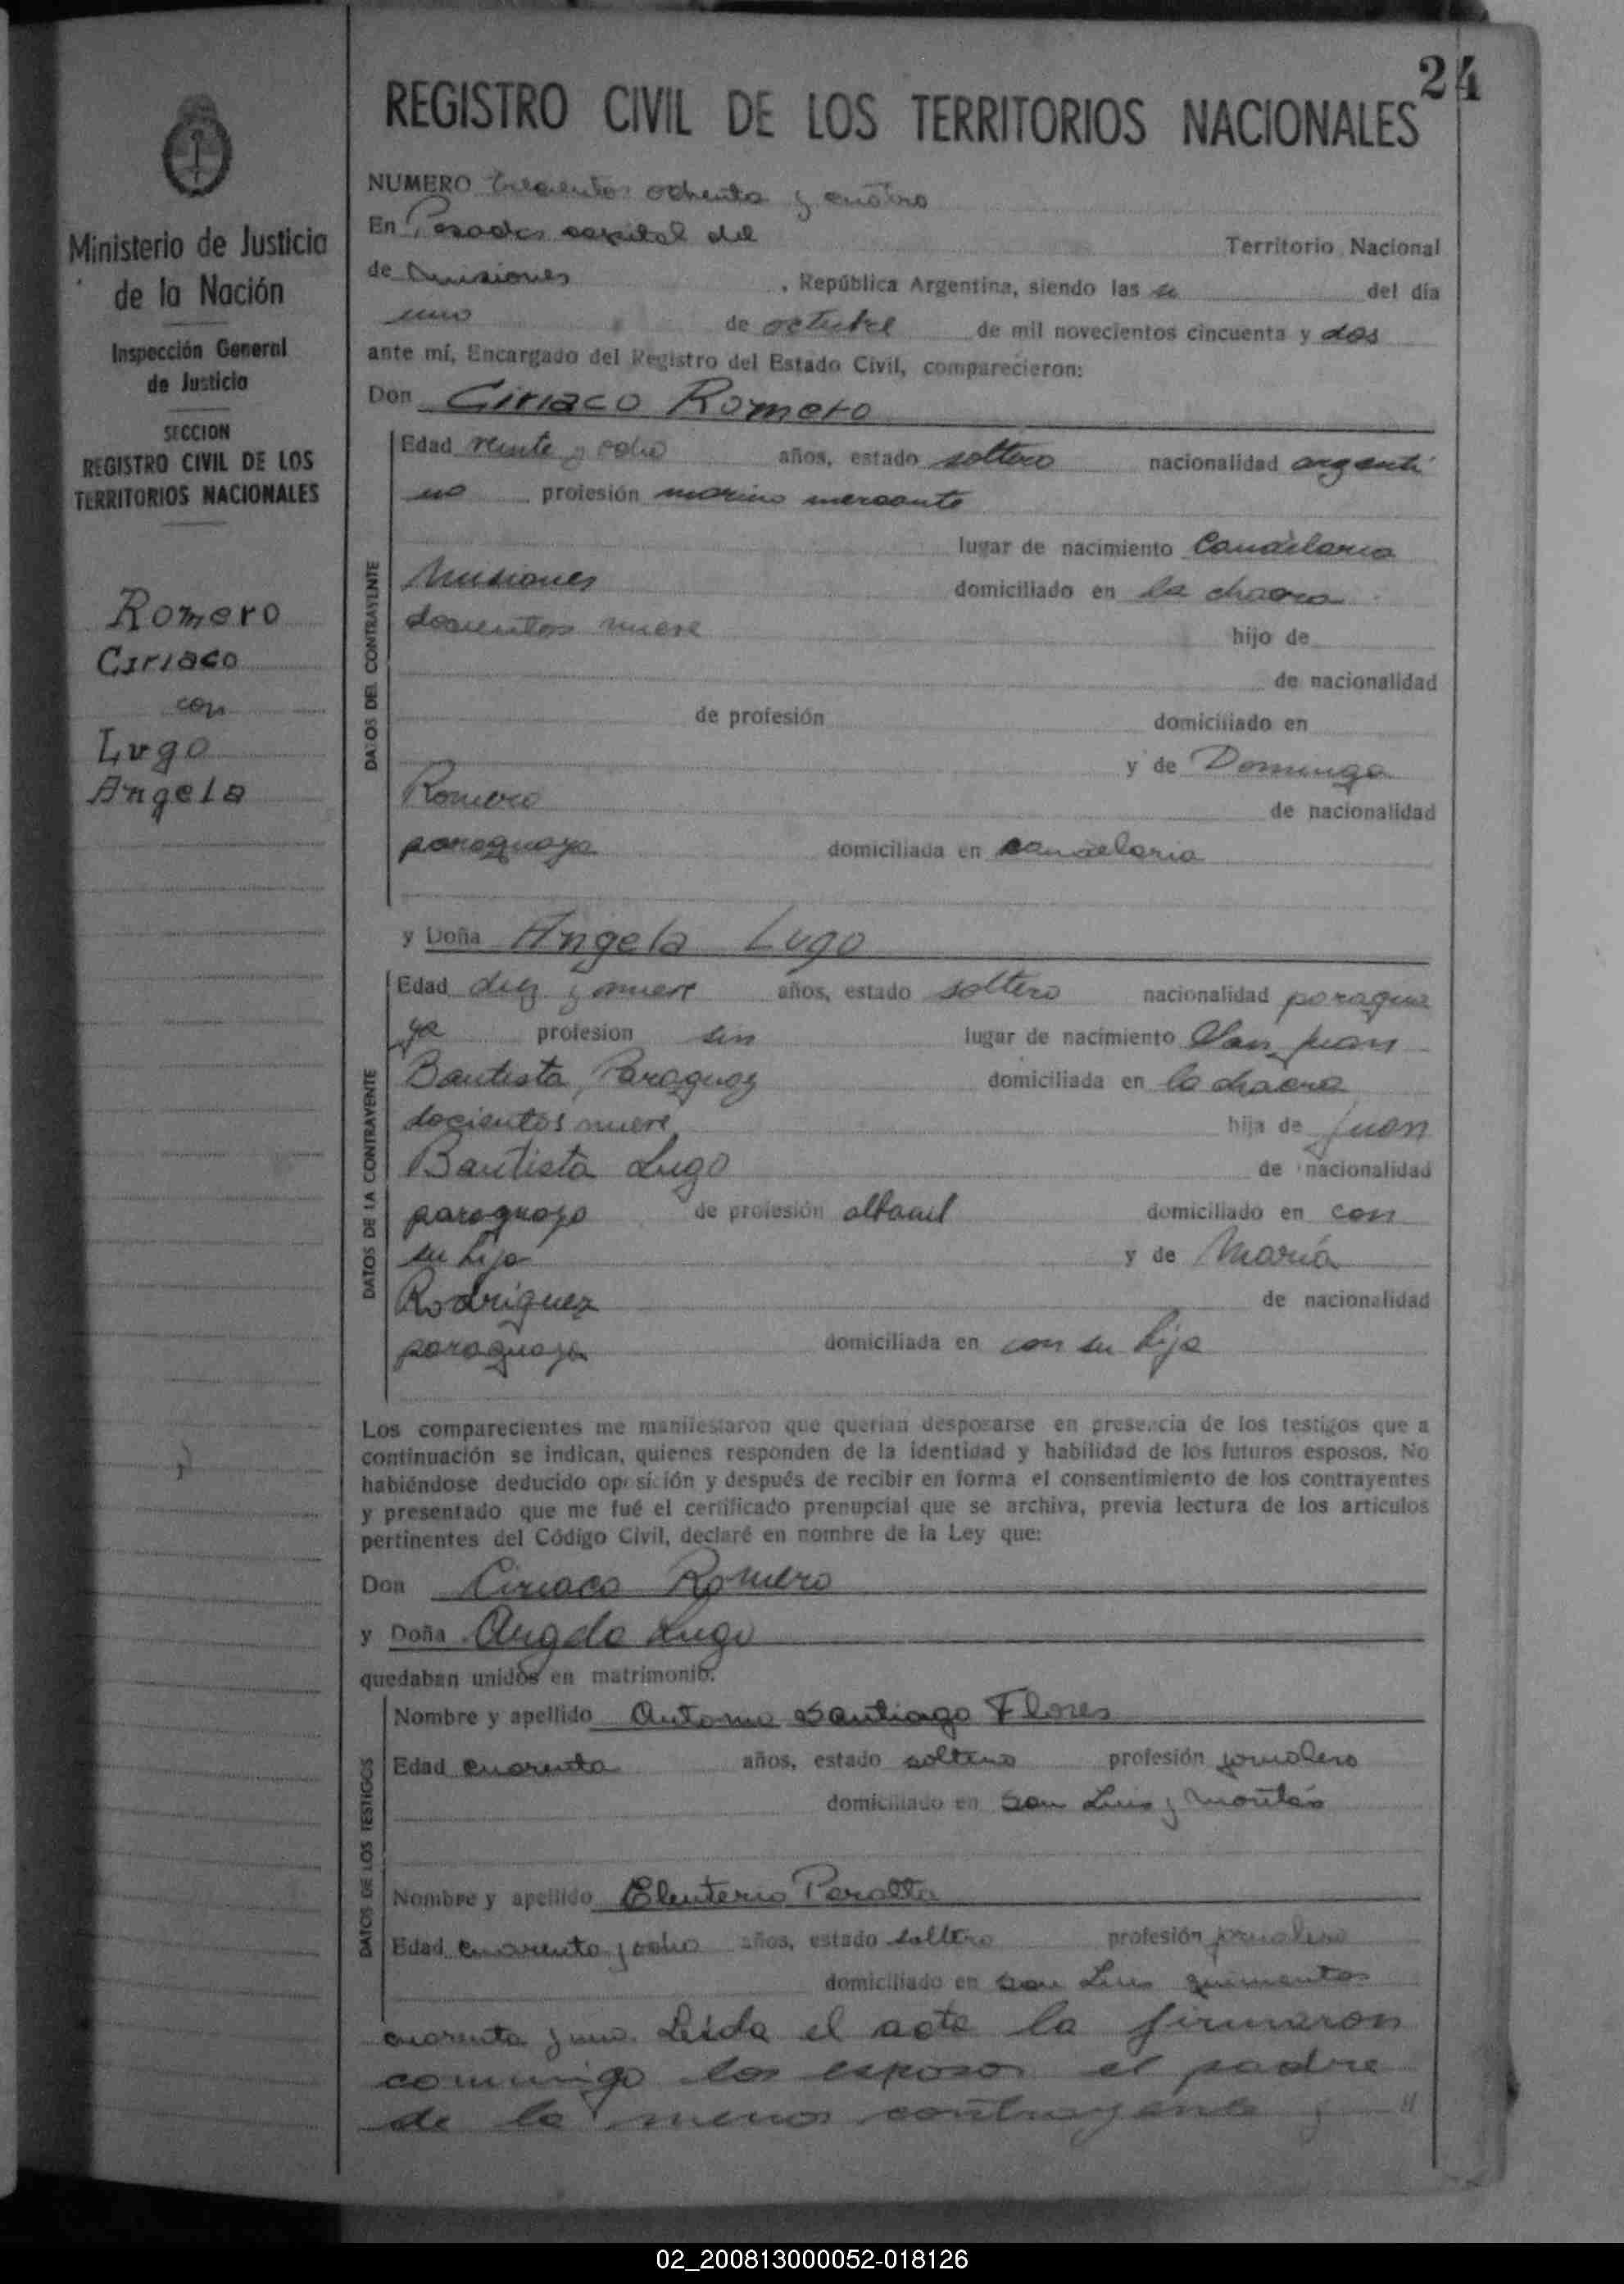 24
REGISTRO CIVIL DE LOS TERRITORIOS NACIONALES
Ministerio de Justicia
de la Nación
Inspección General
de Justicia
SECCION
REGISTRO CIVIL DE LOS
TERRITORIOS NACIONALES
Romero
Ciriaco
con
Lugo
Angela
NUMERO trecientos ochenta y cuatro
En Posadas capital del Territorio Nacional
de Misiones , República Argentina, siendo las del día
uno de octubre de mil novecientos cincuenta y dos
ante mí, Encargado del Registro del Estado Civil, comparecieron:
Don Ciriaco Romero
DATOS DEL CONTRAYENTE
Edad veinte y ocho años, estado soltero nacionalidad argenti
no profesión marino mercante
lugar de nacimiento Candelaria
Misiones domiciliado en la chacra
docientos nueve hijo de
de nacionalidad
de profesión domiciliado en
y de Dominga
Romero de nacionalidad
paraguaya domiciliada en candelaria
y Doña Angela Lugo
DATOS DE LA CONTRAYENTE
Edad diez y nueve años, estado soltero nacionalidad paragua
ya profesion sin lugar de nacimiento San Juan
Bautista, Paraguay domiciliada en la chacra
docientos nueve hija de Juan
Bautista Lugo de nacionalidad
paraguayo de profesión albañil domiciliado en con
su hija y de María
Rodriguez de nacionalidad
paraguaya domiciliada en con su hija
Los comparecientes me manifestaron que querían desposarse en presencia de los testigos que a
continuación se indican, quienes responden de la identidad y habilidad de los futuros esposos. No
habiéndose deducido oposición y después de recibir en forma el consentimiento de los contrayentes
y presentado que me fué el certificado prenupcial que se archiva, previa lectura de los artículos
pertinentes del Código Civil, declaré en nombre de la Ley que:
Don Ciriaco Romero
y Doña Angela Lugo
quedaban unidos en matrimonio.
DATOS DE LOS TESTIGOS
Nombre y apellido Antonio Santiago Flores
Edad cuarenta años, estado soltero profesión jornalero
domiciliado en San Luis y
Nombre y apellido Eleuterio Peralta
Edad cuarenta y ocho años, estado soltero profesión jornalero
domiciliado en San Luis quinientos
cuarenta y uno. Leida el acta la firmaron
conmigo los esposos el padre
de la menor contrayente y —"
02_200813000052-018126